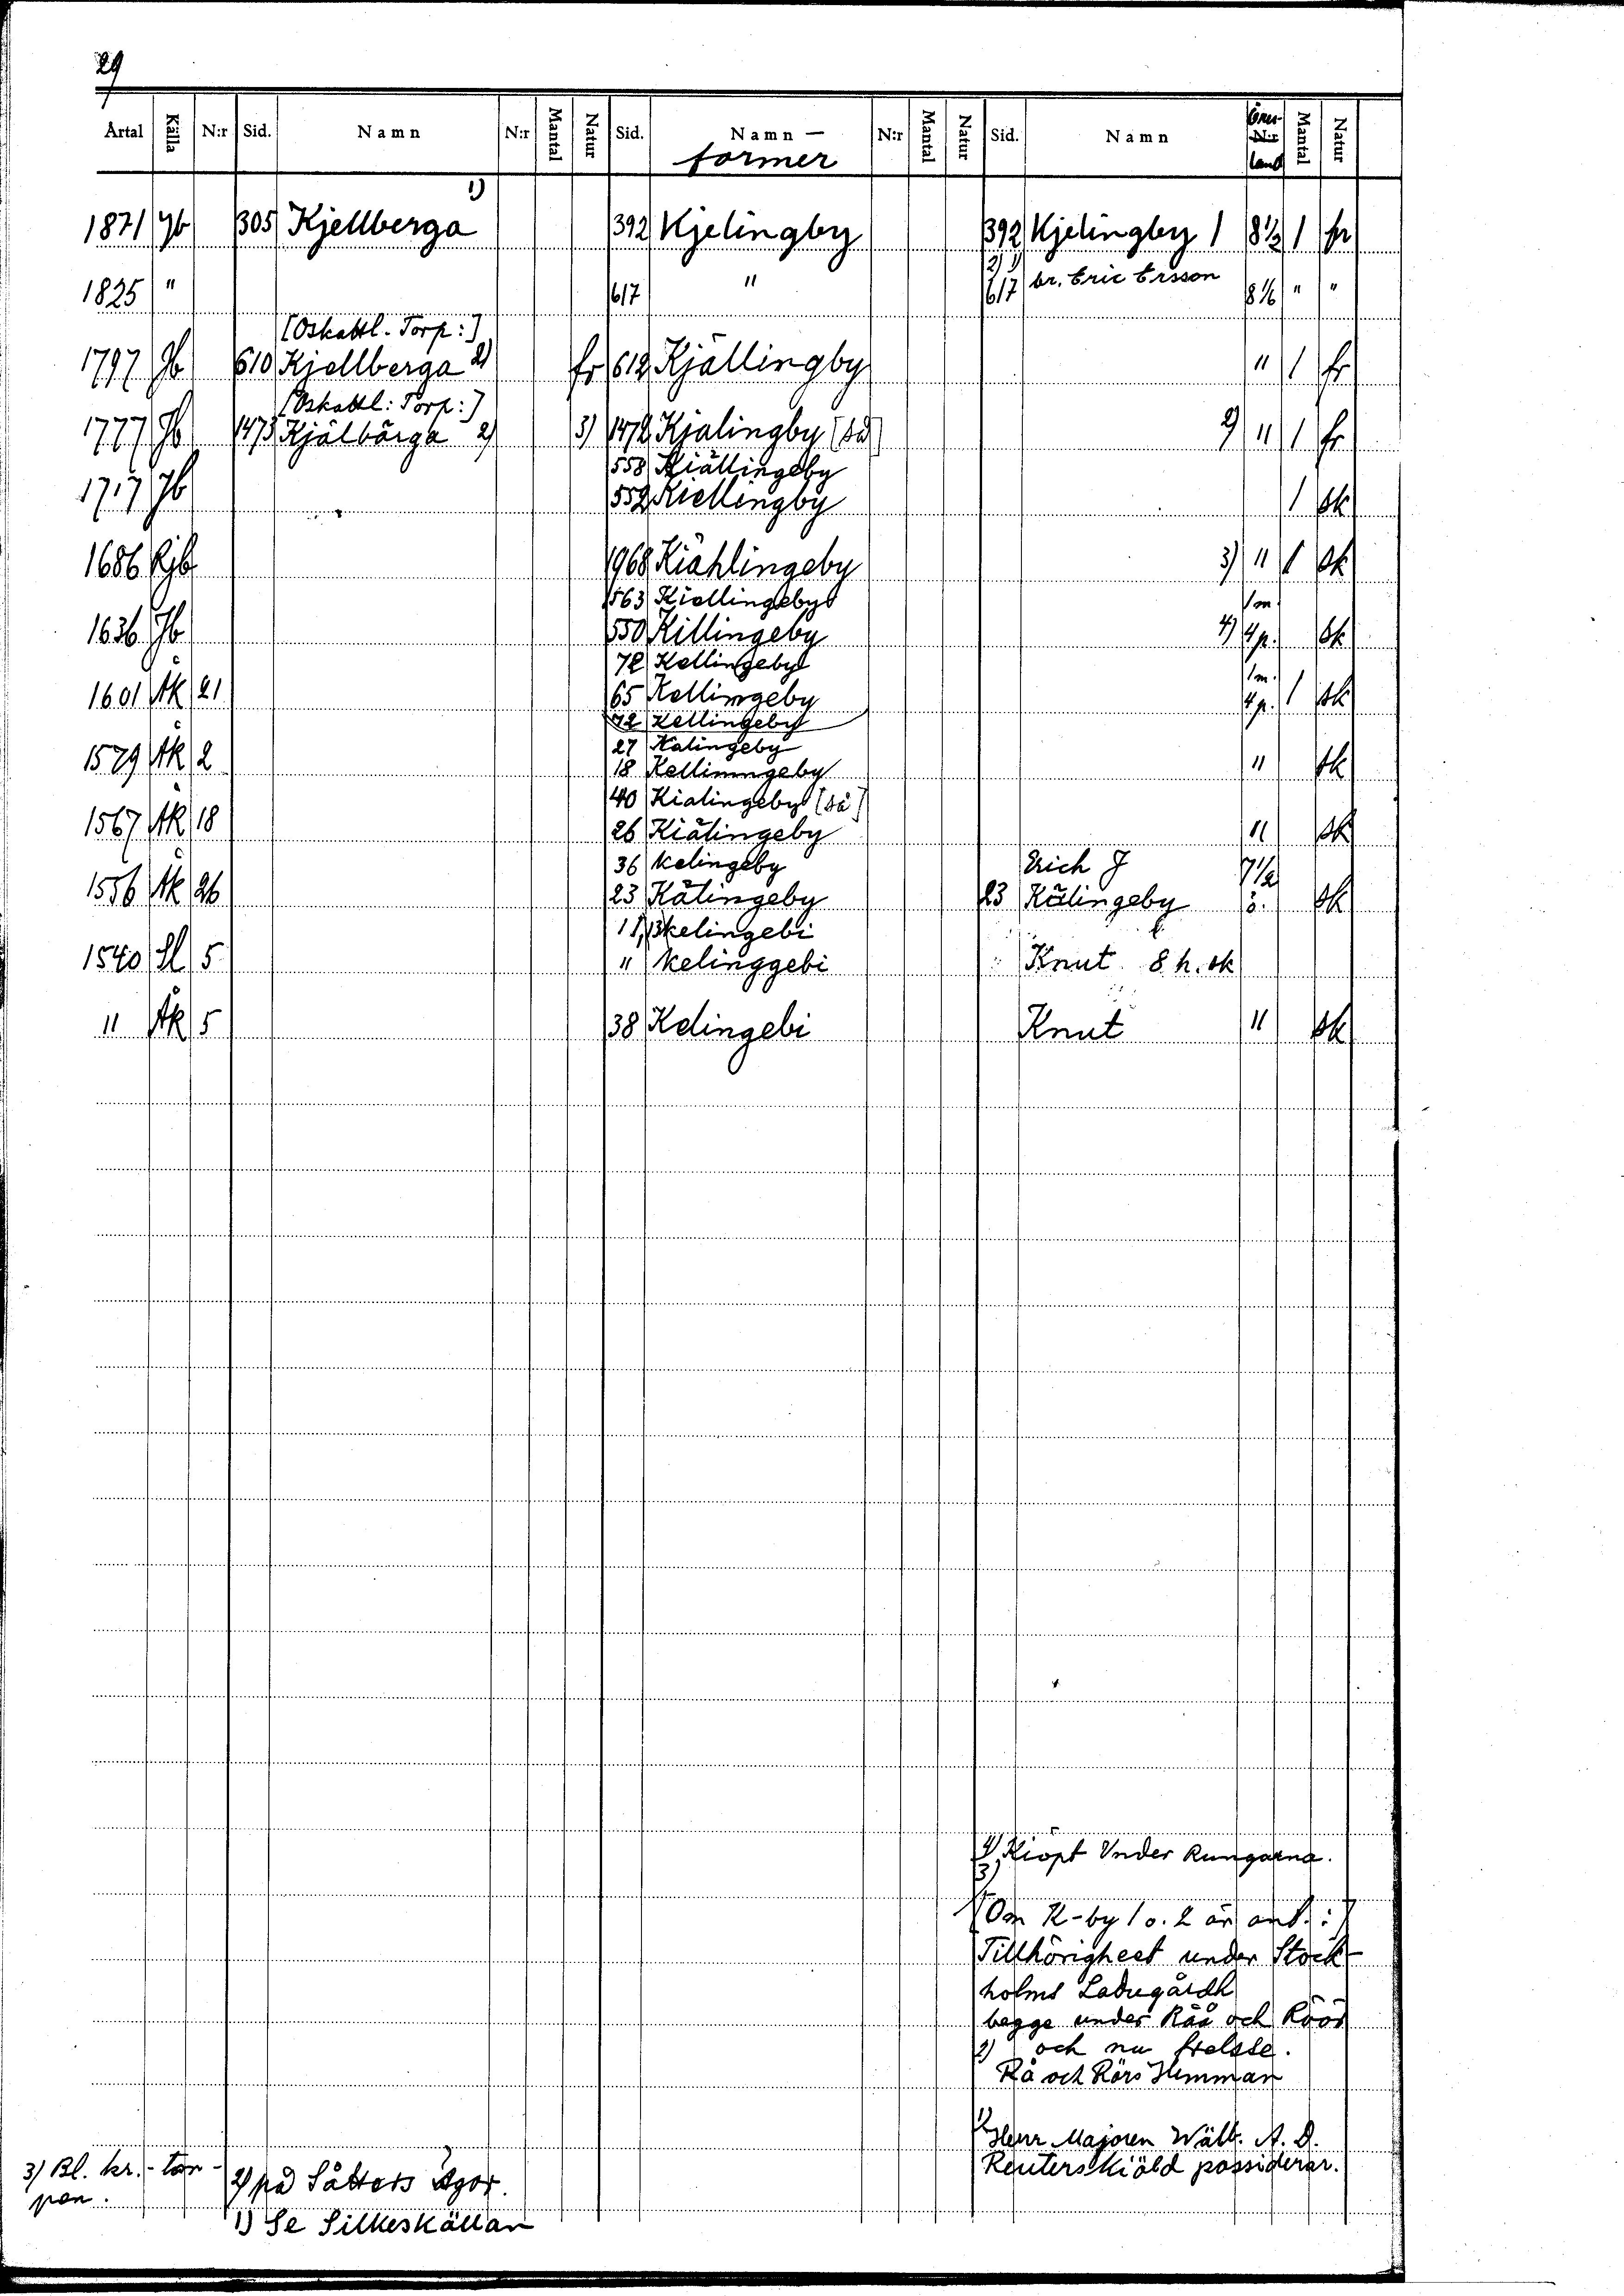 29
Årtal Källa N:r Sid. Namn N:r Mantal Natur Sid. Namn — former N:r Mantal Natur Sid. Namn Öres- N:r land Mantal Natur
1)
1871 Jb 305 Kjellberga 392 Kjelingby 392 Kjelingby 1 8 1/2 1 fr
2) 1)
1825 " 617 " 617 br. Eric Ersson 8 1/6 " "
[Oskattl. Torp:]
1797 Jb 610 Kjellberga 2) fr 612 Kjällingby " 1 fr
[Oskattl: Torp:]
1777 Jb 1473 Kjälbärga 2) 3) 1472 Kjalingby [så] 2) " 1 fr
558 Kiällingeby
1717 Jb 552 Kiellingby 1 sk
1686 Rjb 1968 Kiählingeby 3) " 1 sk
563 Kiellingeby 1 m.
1636 Jb 550 Killingeby 4) 4 p. sk
72 Kellingeby 1 m.
1601 Åk 21 65 Kellingeby 4 p. 1 sk
72 Kellingeby
27 Kalingeby
1579 Åk 2 18 Kellinngeby " sk
40 Kialingeby [så]
1567 Åk 18 26 Kiälingeby " sk
36 kelingeby Erich J 7 1/2
1556 Åk 26 23 Kälingeby 23 Kälingeby ö. sk
11,13 kelingebi
1540 Sl 5 " kelinggebi " Knut 8 h. sk
" Åk 5 38 Kelingebi Knut " sk
4) Kiöpt Under Rungarna.
3)
[Om K-by 1 o. 2 är ant.:]
Tillhörigheet under Stock-
holms Ladugårdh
begge under Råå och Röör
2) och nu frelsse.
Rå och Rörs Hemman
1) Herr Majoren Wälb. A. D.
Reuterskiöld possiderar.
3) Bl. kr.-tor-
pen.
2) på Såttots Ägor.
1) Se Silkeskällan